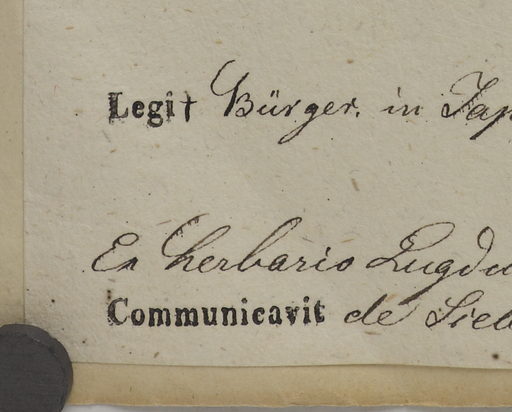 Legit Bürger. in Jap
Ex herbario Lugdu
Communicavit de Sieb